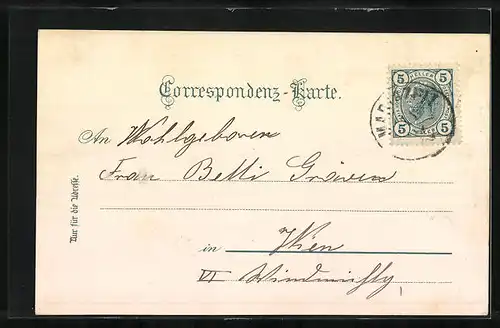 Correspondenz-Karte.
5 HELLER 5
5 5
MAR
An Wohlgeboren
Frau Betti
in Wien
VI
Nur für die Adresse.